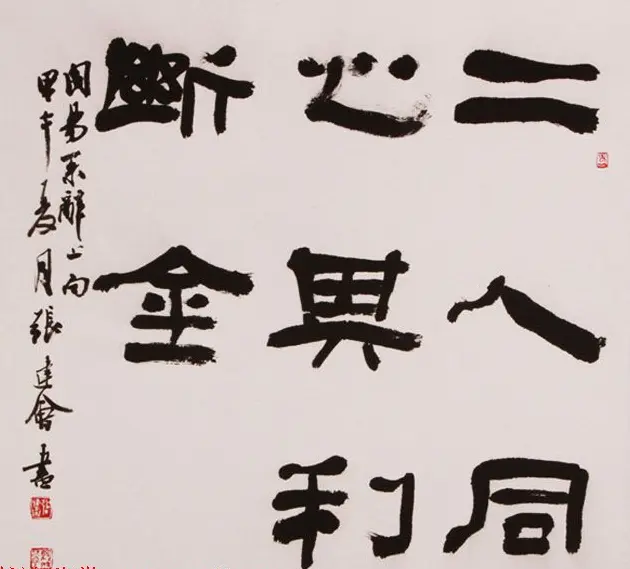 二人同
心其利
斷金
周易系辭上句
甲午夏月張建會書